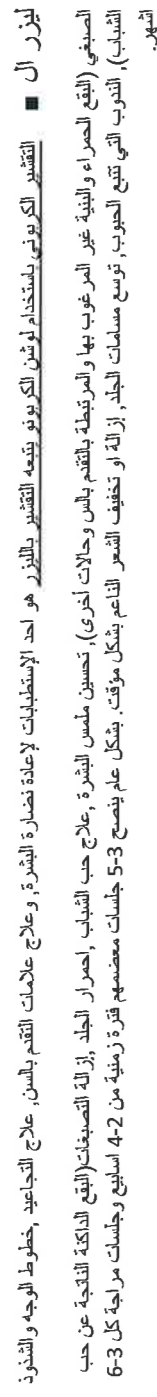 ■ ليزر ال
التقشير الكربوني باستخدام لوشن الكربونو يتبعه التقشير بالليزر هو احد الإستطبابات لإعادة نضارة البشرة, وعلاج علامات التقدم بالسن, علاج التجاعيد ,خطوط الوجه والشذوذ
الصبغي (البقع الحمراء والبنية غير المرغوب بها والمرتبطة بالتقدم بالس وحالات أخرى), تحسين ملمس البشرة ,علاج حب الشباب ,احمرار الجلد ,إزالة التصبغات(البقع الداكنة الناتجة عن حب
الشباب), الندوب التي تتبع الحبوب, توسع مسامات الجلد, إزالة او تخفيف الشعر الناعم بشكل مؤقت. بشكل عام ينصح 3-5 جلسات معضمهم فترة زمنية من 2-4 اسابيع وجلسات مراجة كل 3-6
اشهر.